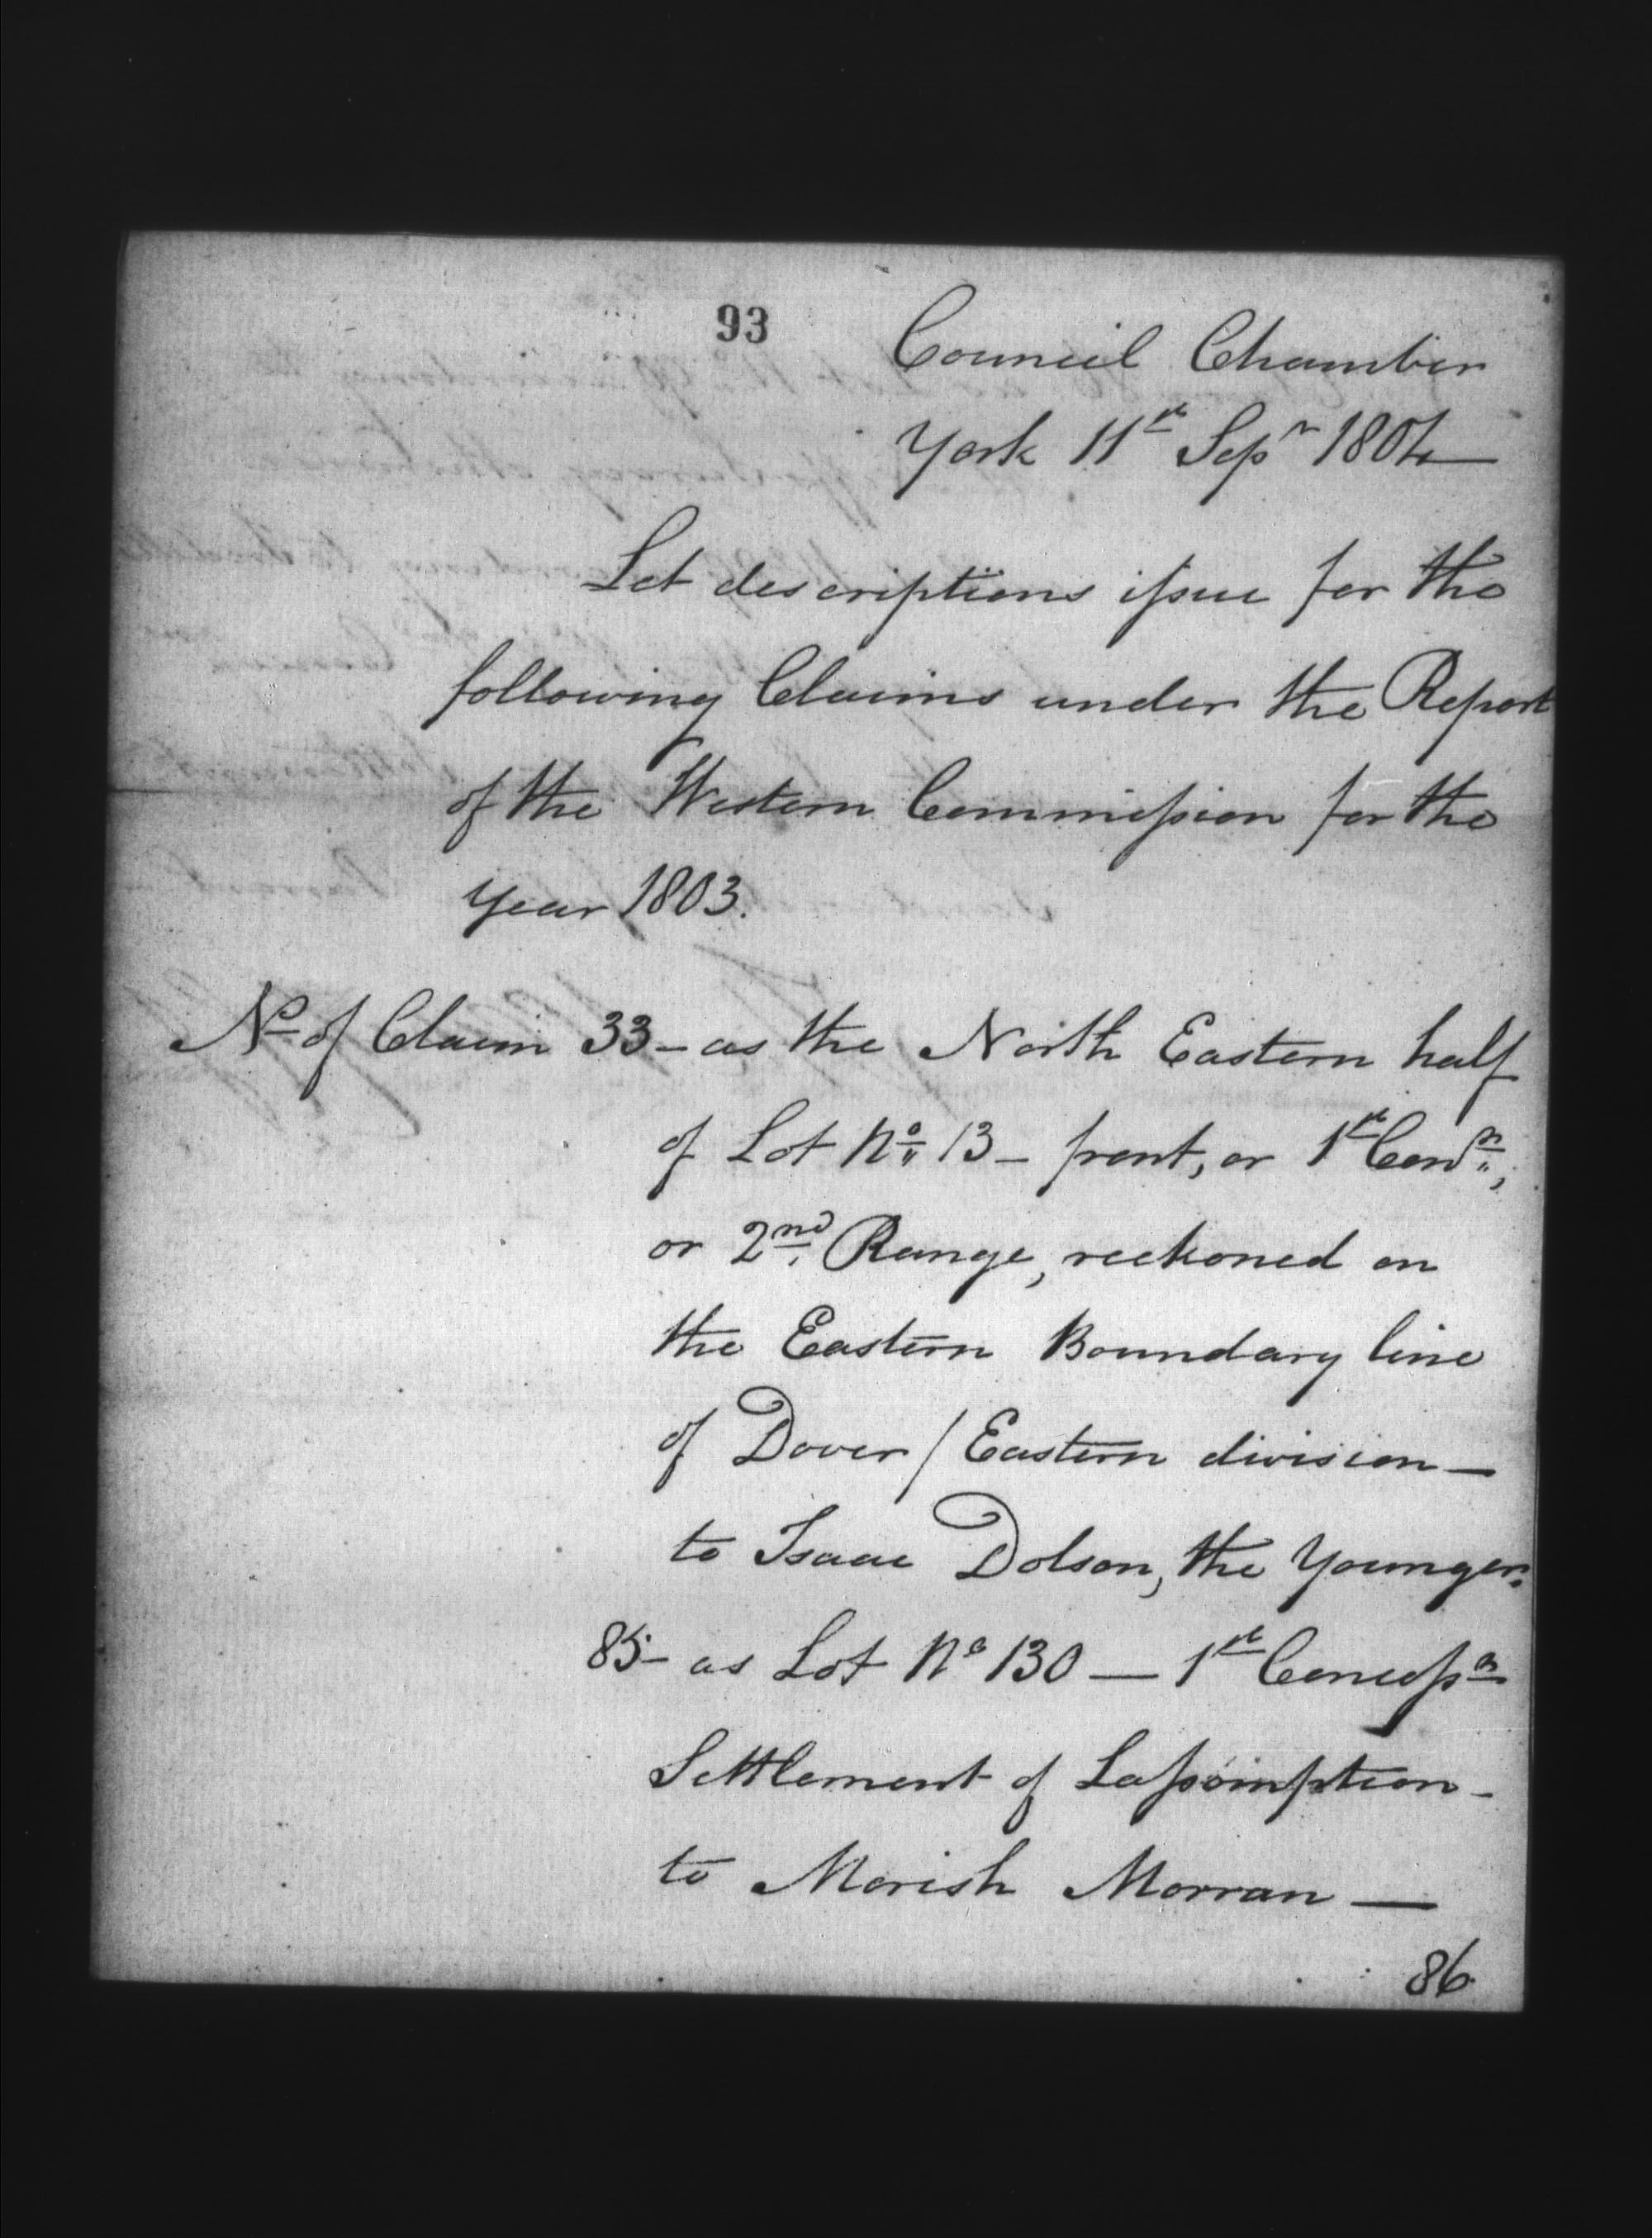 93
Council Chamber
York 11th Sepr 1804
Let descriptions issue for the
following Claims under the Report
of the Western Commission for the
year 1803.
No of Claim 33 - as the North Eastern half
of Lot No 13 - front, or 1st Conn,
or 2nd Range, reckoned on
the Eastern Boundary line
of Dover / Eastern division —
to Isaac Dolson, the Younger.
85 - as Lot No 130 — 1st Concessn
Settlement of Lassomption -
to Morish Morran —
86